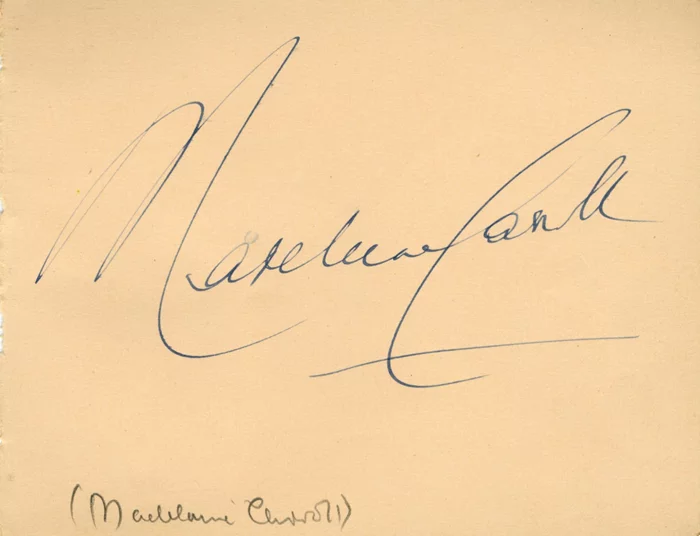 Madeleine Carroll
(Madelaine Carroll)